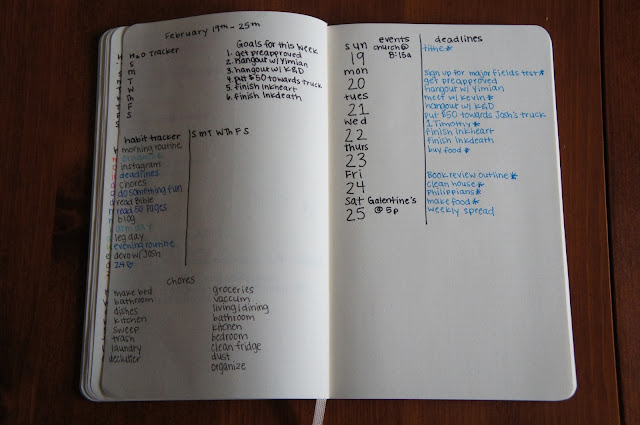 February 19th - 25th
H2O Tracker
S
M
T
W
Th
F
S
Goals for this Week
1. get preapproved
2. hangout w/ Yimian
3. hangout w/ K&D
4. put $50 towards truck
5. finish Inkheart
6. finish Inkdeath
habit tracker
S M T W Th F S
morning routine
instagram
deadlines
chores
do something fun
read Bible
read 50 pages
blog
arm day
leg day
evening routine
devo w/ Josh
chores
make bed
bathroom
dishes
kitchen
sweep
trash
laundry
declutter
groceries
vaccum
living/dining
bathroom
kitchen
bedroom
clean fridge
dust
organize
events
deadlines
sun
19
church @
8:15a
tithe *
mon
20
sign up for major fields test *
get preapproved
hangout w/ Yimian
tues
21
meet w/ Kevin *
hangout w/ K&D
put $50 towards Josh's truck
wed
22
1 Timothy *
finish inkheart
finish inkdeath
thurs
23
buy food *
Fri
24
Book review outline *
clean house *
Philippians *
Sat
25
Galentine's
@ 5p
make food *
weekly spread